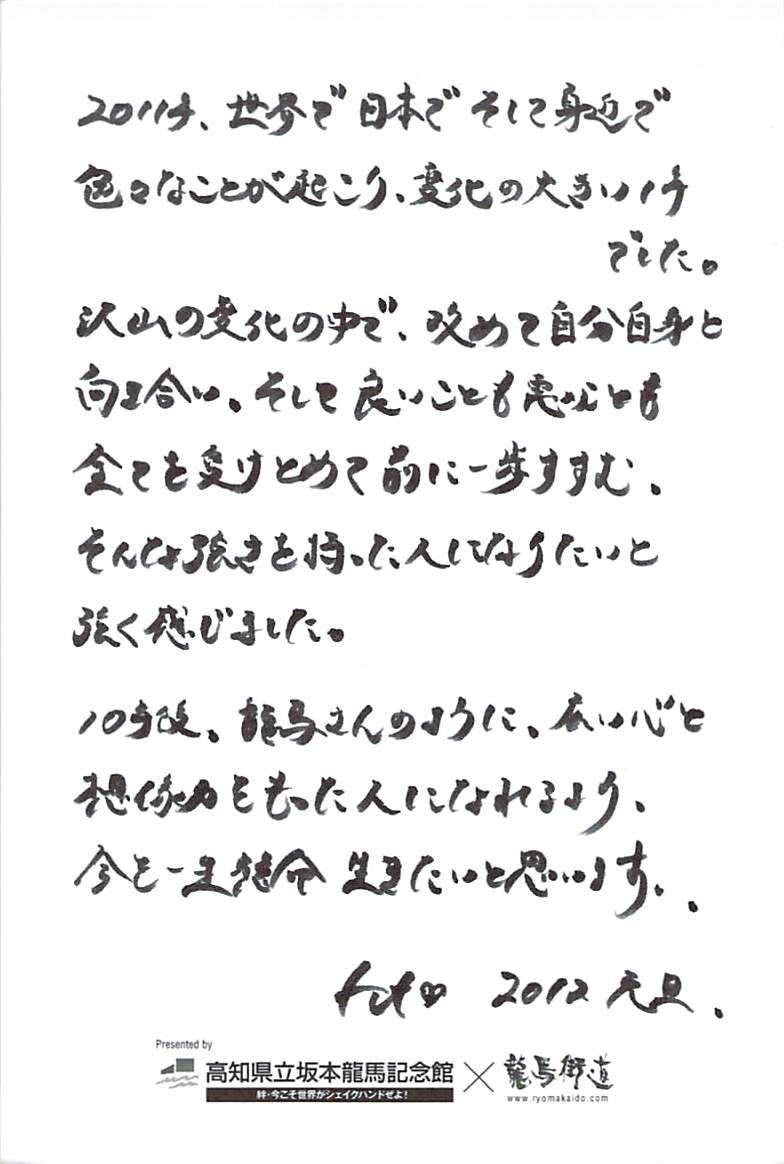 2011年、世界で日本でそして身近で
色々なことが起こり、変化の大きい1年
でした。
沢山の変化の中で、改めて自分自身と
向き合い、そして良いことも悪いことも
全てを受けとめて前に一歩すすむ、
そんな強さを持った人になりたいと
強く感じました。
10年後、龍馬さんのように、広い心と
想像力をもった人になれるよう、
今を一生懸命 生きたいと思います。
2012 元旦.
Presented by
高知県立坂本龍馬記念館 × 龍馬街道
絆・今こそ世界がシェイクハンドせよ!
www.ryomakaido.com